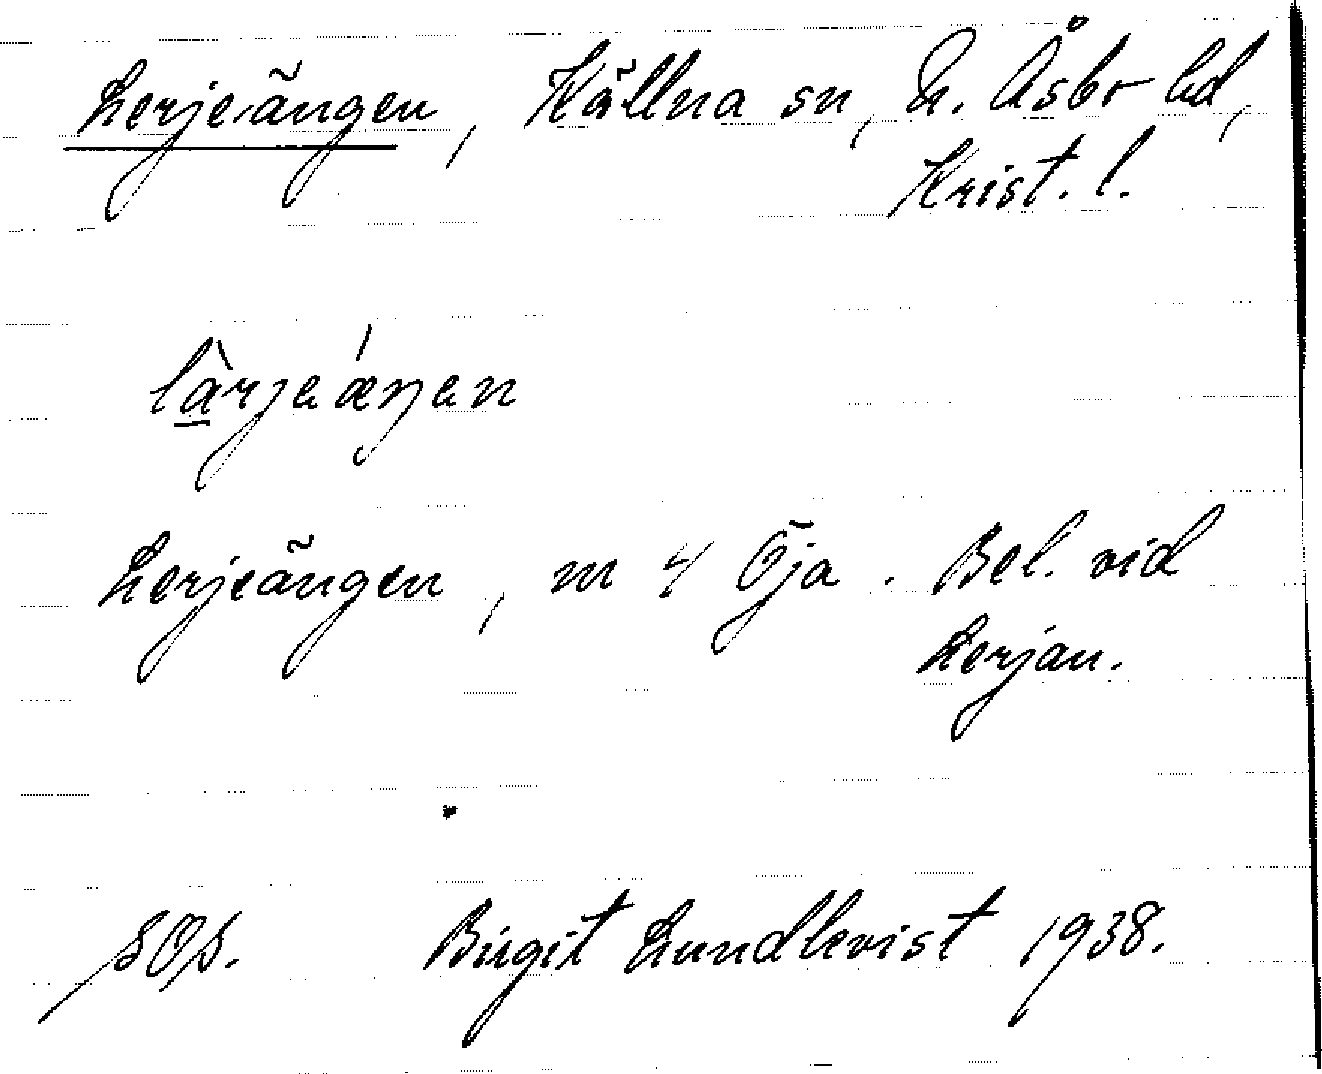 Lerjeängen, Källna sn, N. Åsbo hd,
Krist. l.
làrjeǽŋen
Lerjeängen, m 4 Öja. Bel. vid
Lerjan.
SOS. Birgit Lundkvist 1938.